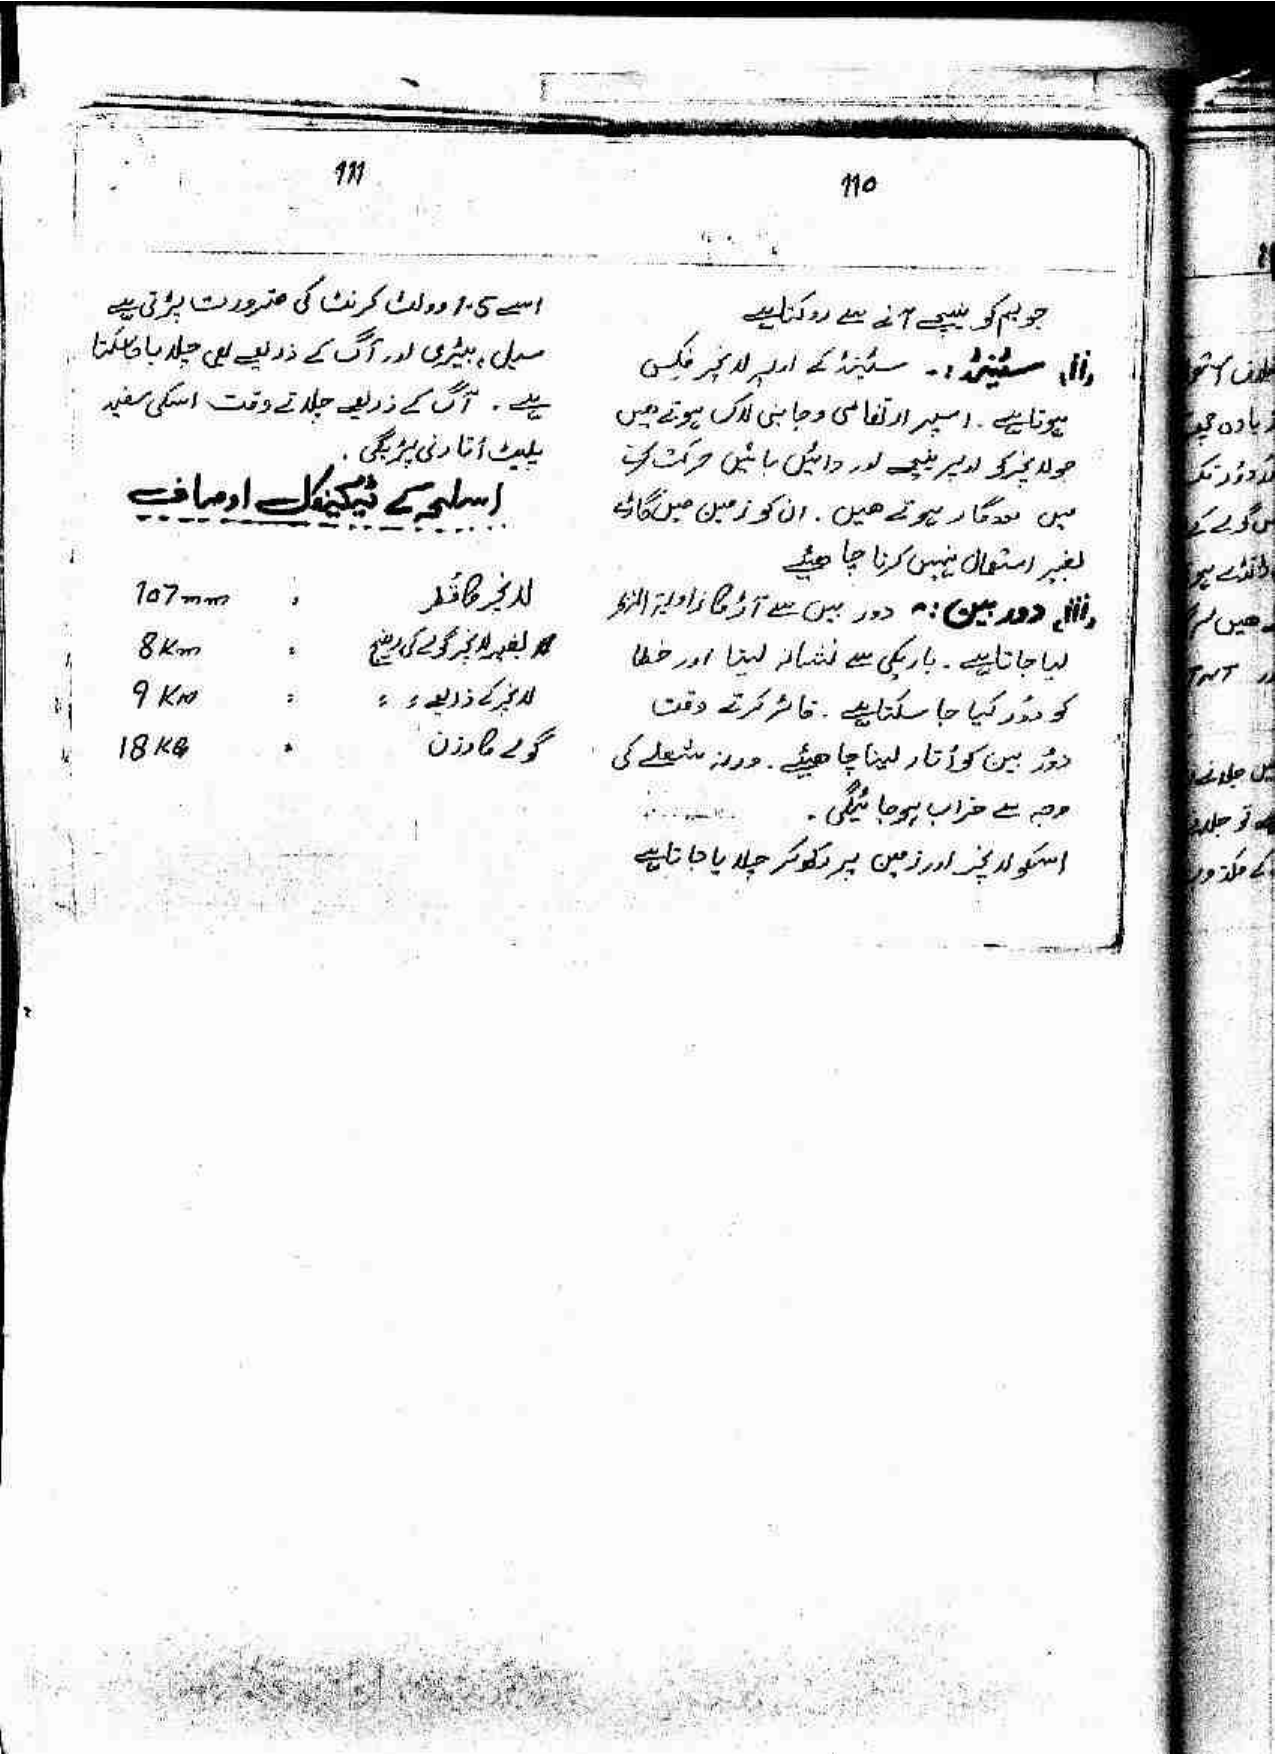 110
جو بم کو نیچے آنے سے روکتا ہے
(ii) سٹینڈ :- سٹینڈ کے اوپر لانچر فکس
ہوتا ہے ۔ اسپر ارتفاعی و جانبی لاک ہوتے ہیں
جو لانچر کو اوپر نیچے اور دائیں بائیں حرکت
میں مددگار ہوتے ھیں ۔ ان کو زمین میں گاڑے
بغیر استعمال نہیں کرنا چاھیئے
(iii) دور بین :- دور بین سے آڑ کا زاویۃ
لیا جاتا ہے ۔ باریکی سے نشانہ لینا اور خطا
کو دور کیا جا سکتا ہے ۔ فائر کرتے وقت
دور بین کو اُتار لینا چاھیئے ۔ ورنہ شعلے کی
وجہ سے خراب ہو جائیگی ۔
اسکو لانچر اور زمین پر رکھ کر چلایا جاتا ہے
111
اسے 1.5 وولٹ کرنٹ کی ضرورت پڑتی ہے
سیل ، بیٹری اور آگ کے ذریعے بھی چلایا جا سکتا
ہے ۔ آگ کے ذریعے چلاتے وقت اسکی سفید
پلیٹ اُتارنی پڑیگی ۔
اسلحہ کے ٹیکنیکل اوصاف
لانچر کا قُطر : 107mm
بغیر لانچر گولے کی رینج : 8Km
لانچر کے ذریعے " " : 9 KM
گولے کا وزن : 18 KG